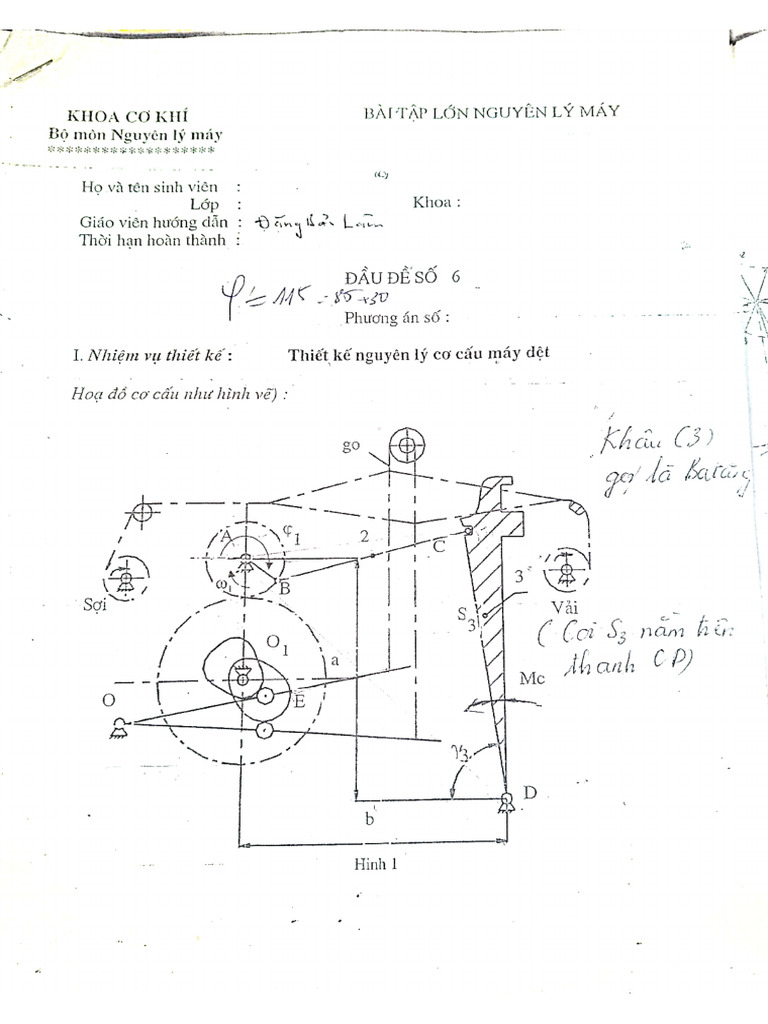 KHOA CƠ KHÍ
Bộ môn Nguyên lý máy
*******************
BÀI TẬP LỚN NGUYÊN LÝ MÁY
Họ và tên sinh viên :
Lớp :
Khoa :
Giáo viên hướng dẫn : Đặng Bảo Lâm
Thời hạn hoàn thành :
ĐẦU ĐỀ SỐ 6
φ' = 115 - 85 + 30
Phương án số :
I. Nhiệm vụ thiết kế : Thiết kế nguyên lý cơ cấu máy dệt
Hoạ đồ cơ cấu như hình vẽ) :
Khâu (3)
gọi là Batăng
go
A
φ1
2
C
ω1
B
Sợi
3
S3
Vải
(Coi S3 nằm trên
thanh CD)
O1
a
Mc
O
E
γ3
D
b
Hình 1